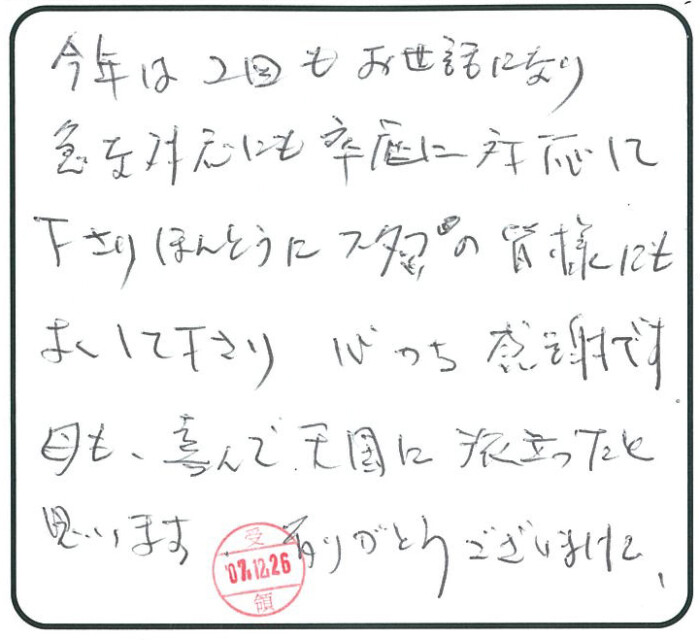 今年は2回もお世話になり
急な対応にも卒直に対応して
下さりほんとうにスタッフの皆様にも
よくして下さり 心から感謝です
母も、喜んで天国に旅立ったと
思います ありがとうございました、
受
'07.12.26
領